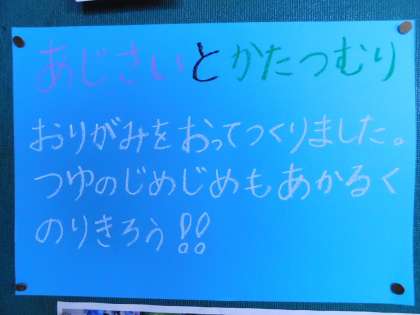 あじさいとかたつむり
おりがみをおってつくりました。
つゆのじめじめもあかるく
のりきろう!!